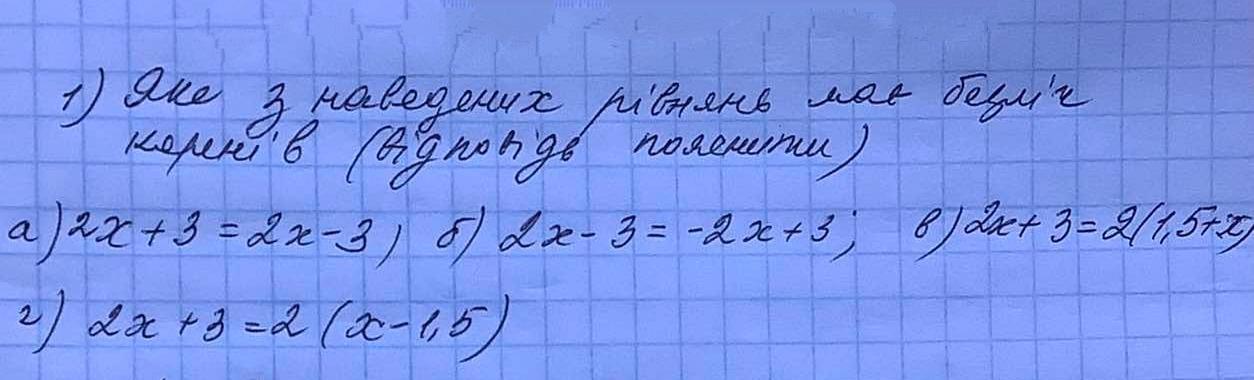 1) Яке з наведених рівнянь має безліч
коренів (відповідь пояснити)
а) 2x + 3 = 2x - 3; б) 2x - 3 = -2x + 3; в) 2x + 3 = 2(1,5 + x)
г) 2x + 3 = 2 (x - 1,5)